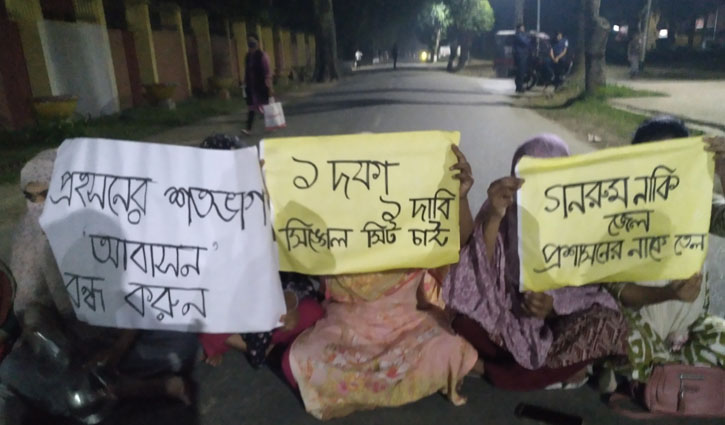 প্রহসনের শতভাগ
'আবাসন'
বন্ধ করুন
১ দফা
১ দাবি
সিঙ্গেল সিট চাই
গনরুম নাকি
জেল
প্রশাসনের নাকে তেল